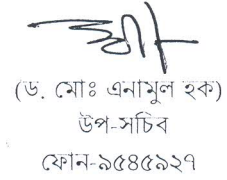 (ড. মোঃ এনামুল হক)
উপ-সচিব
ফোন-৯৫৪৫৯২৭